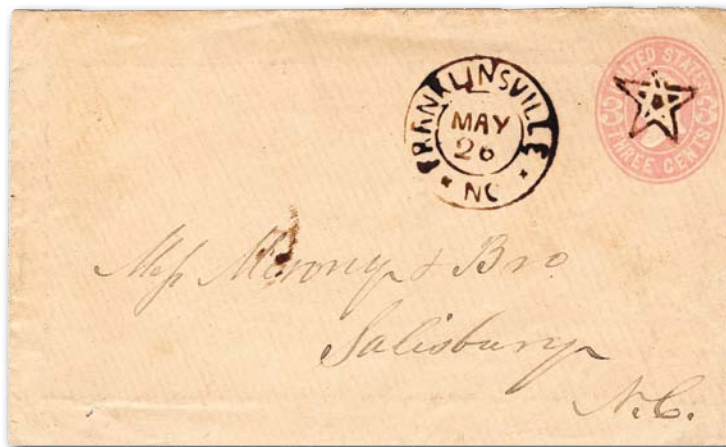 FRANKLINSVILLE
MAY
26
NC
UNITED STATES
3 3
THREE CENTS
Mess Meroney & Bro
Salisbury
N.C.